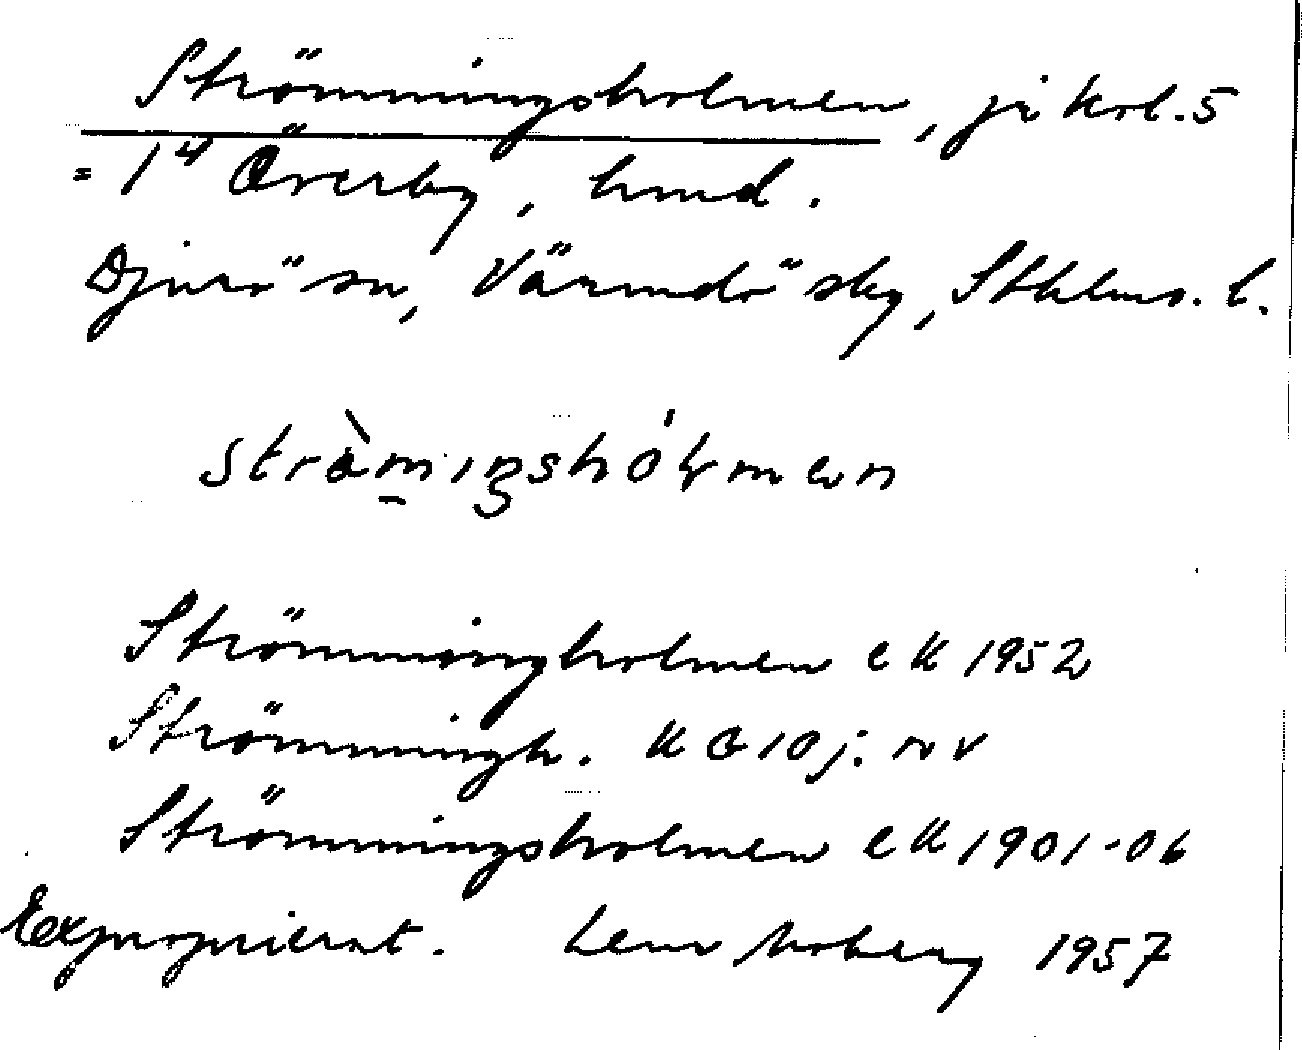 Strömmingsholmen, ji krl. 5
= 1⁴ Överby, hmd.
Djurö sn, Värmdö sky, Sthlms. l.
stràmiŋshóɫmen
Strömmingholmen ek 1952
Strömmingh. K G 10 j. nv
Strömmingsholmen ek 1901-06
Exproprierat. Lena Moberg 1957